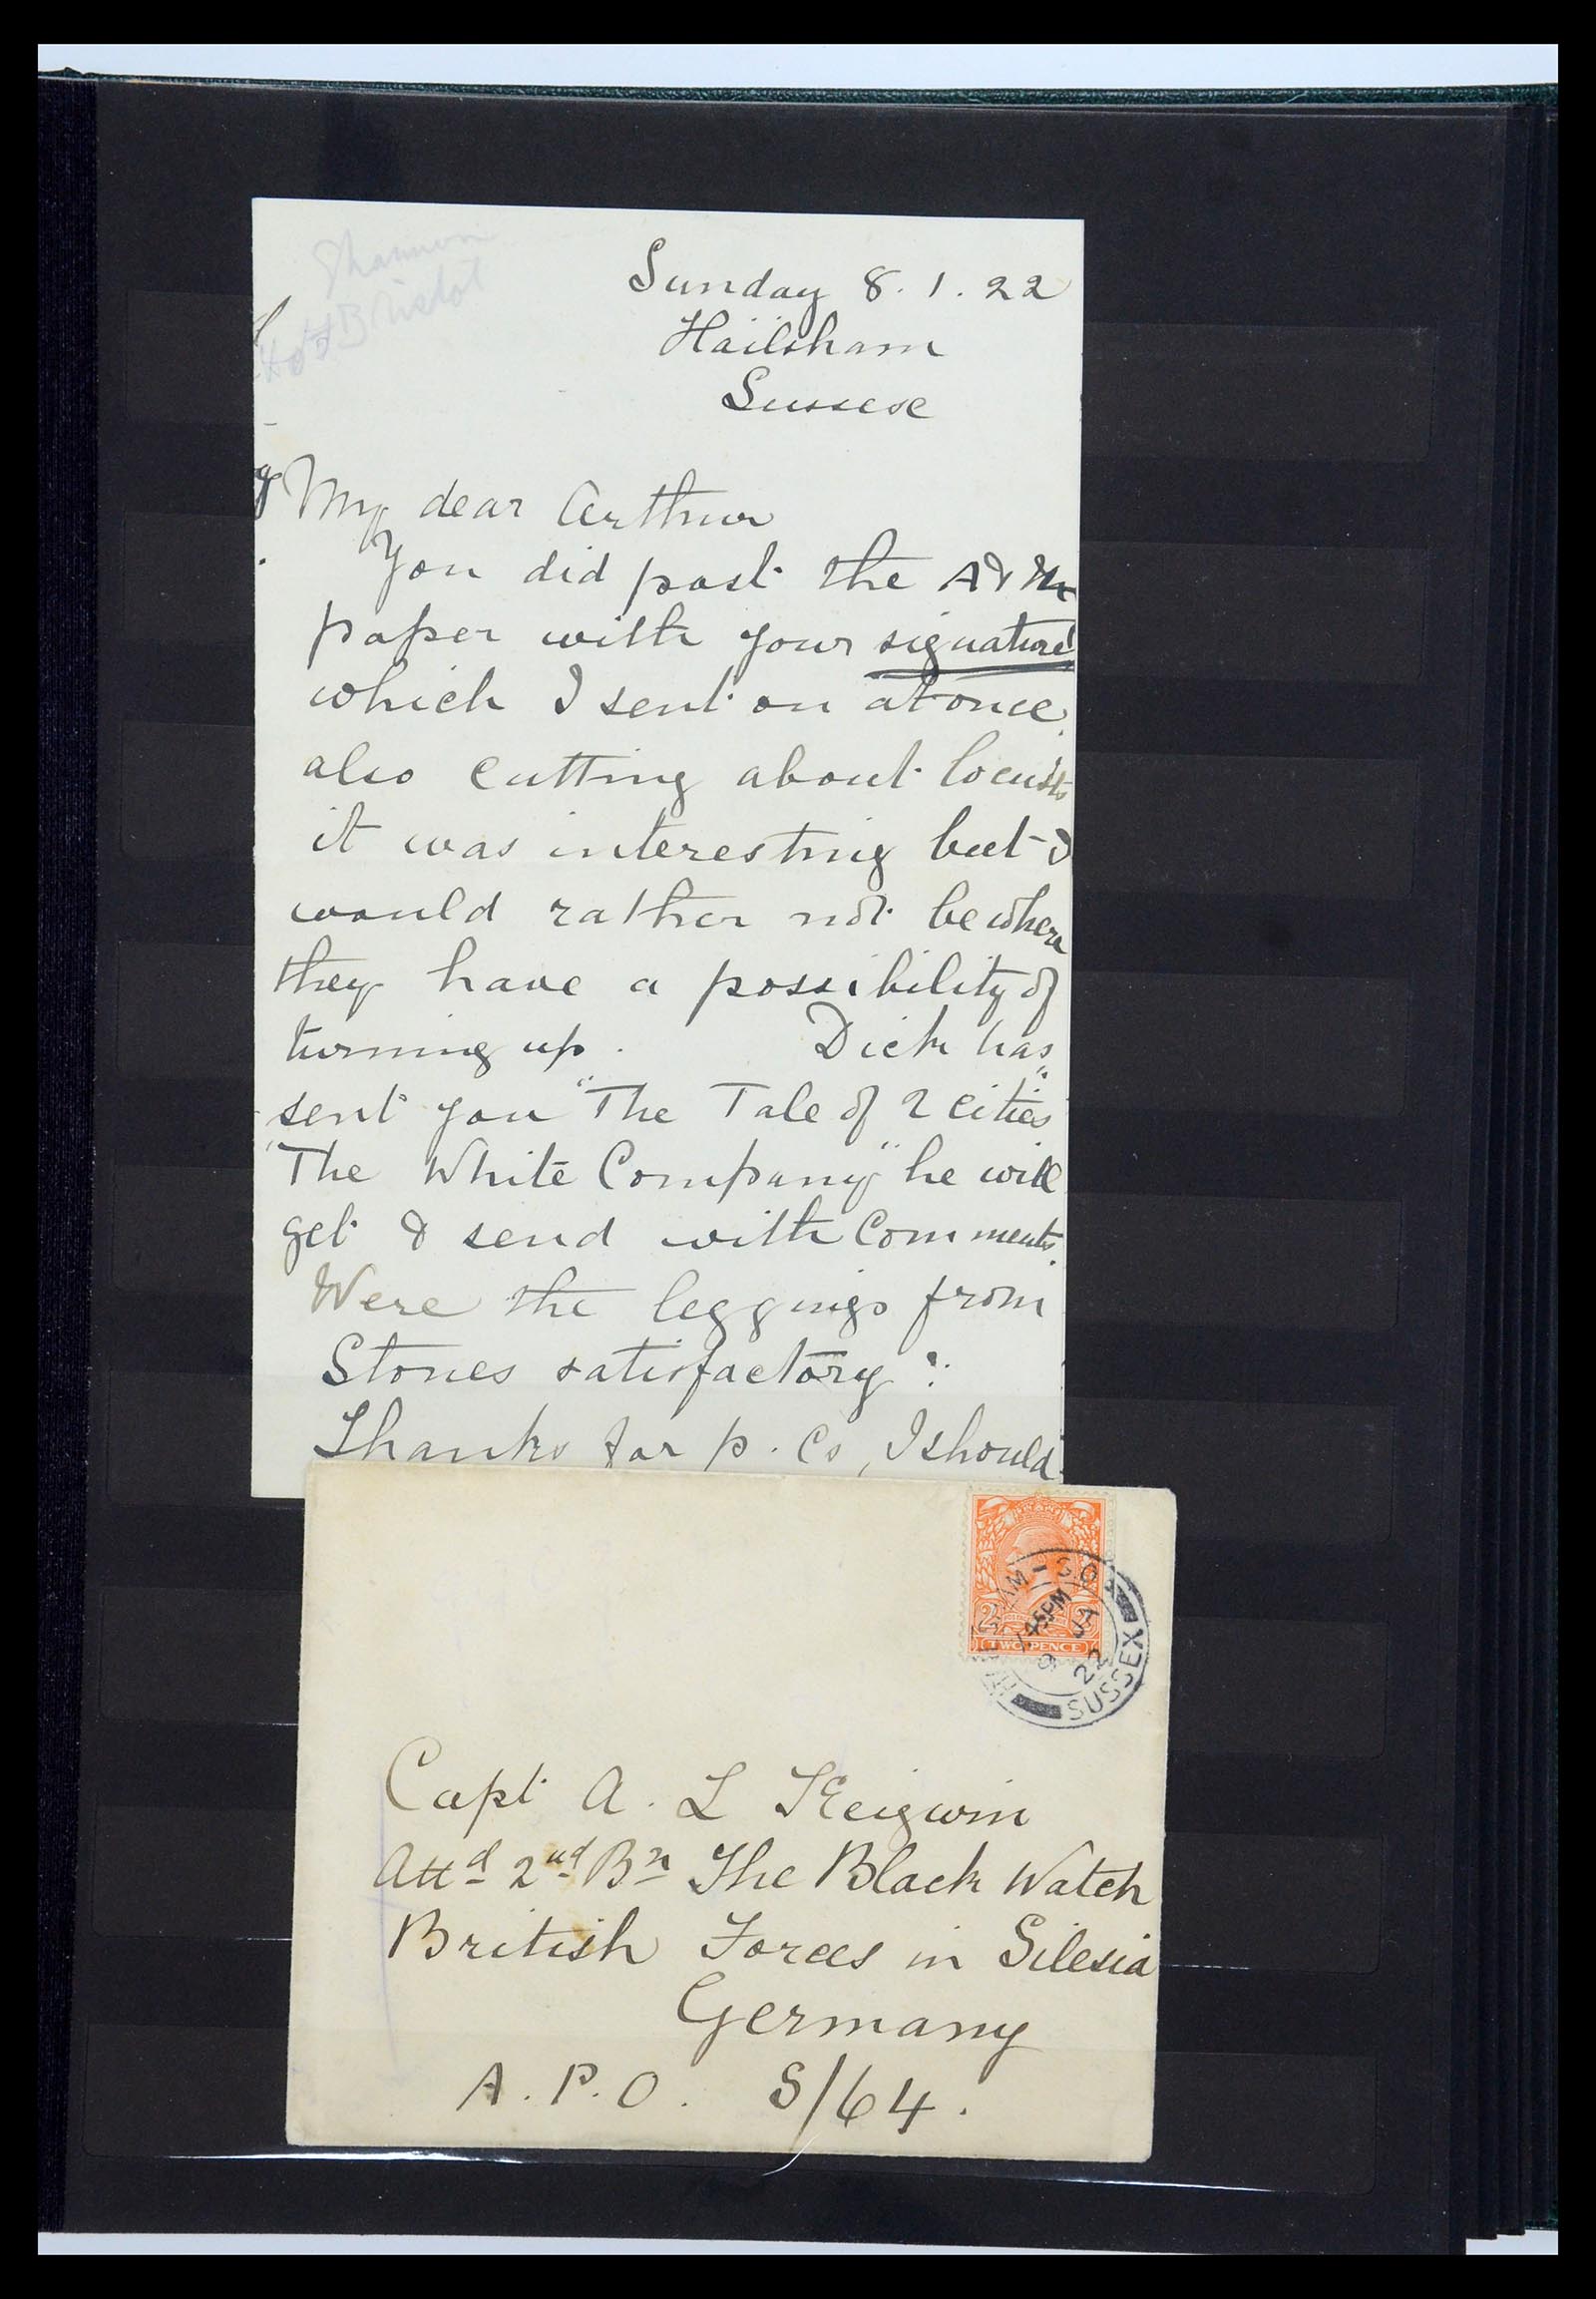 Shannon
Bristol
Sunday 8.1.22
Hailsham
Sussex
My dear Arthur
You did post the A &
paper with your signature
which I sent on at once
also cutting about locusts
it was interesting but I
would rather not be where
they have a possibility of
turning up. Dick has
sent you "The Tale of 2 cities"
"The White Company" he will
get & send with Comments.
Were the leggings from
Stones satisfactory?
Thanks for p.cs, I should
HAILSHAM S.O.
1 45 PM
9 JA
22
SUSSEX
TWO PENCE
Capt A. L Keigwin
Attd 2nd Bn The Black Watch
British Forces in Silesia
Germany
A.P.O. S/64.